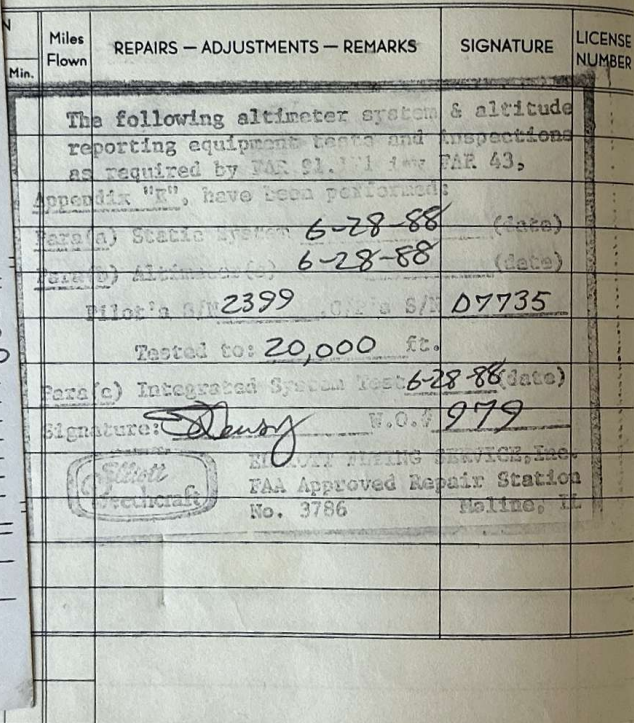 N
Min.
Miles Flown
REPAIRS — ADJUSTMENTS — REMARKS
SIGNATURE
LICENSE NUMBER
The following altimeter system & altitude
reporting equipment tests and inspections
as required by FAR 91. FAR 43,
Appendix "E", have been performed:
Para(a) Static System 6-28-88 (date)
Para(b) Altimeter(s) 6-28-88 (date)
Pilot's S/N 2399 C/P's S/N D7735
Tested to: 20,000 ft.
Para(c) Integrated System Test 6-28-88 (date)
Signature: W.O.# 979
Elliott
Beechcraft
ELLIOTT FLYING SERVICE, Inc.
FAA Approved Repair Station
No. 3786 Moline, IL